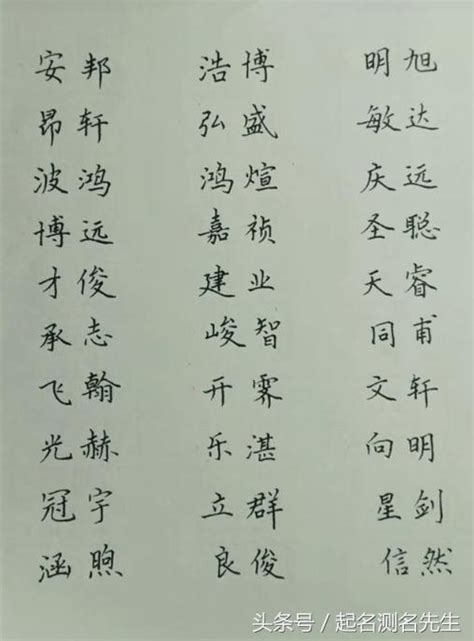 安邦 浩博 明旭
昂轩 弘盛 敏达
波鸿 鸿煊 庆远
博远 嘉祯 圣聪
才俊 建业 天睿
承志 峻智 同甫
飞翰 开霁 文轩
光赫 乐湛 向明
冠宇 立群 星剑
涵煦 良俊 信然
头条号 / 起名测名先生